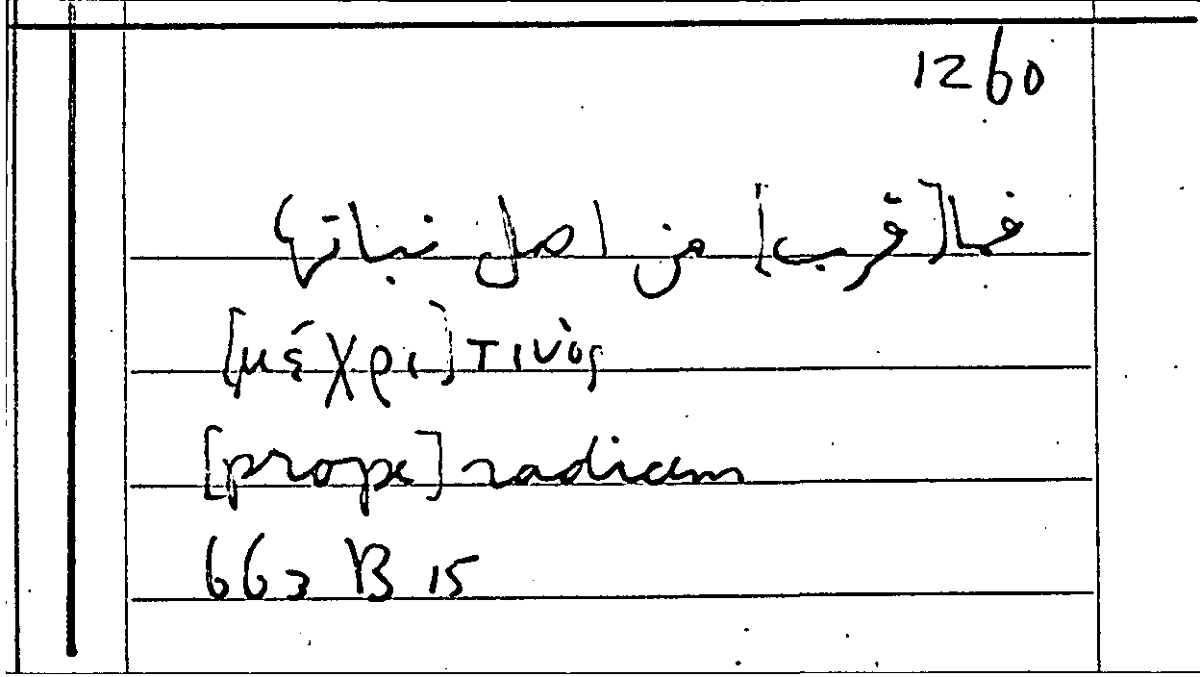 1260
فما [قرب] من اصل نباتها
[μέχρι] τινὸς
[prope] radicem
663 B 15